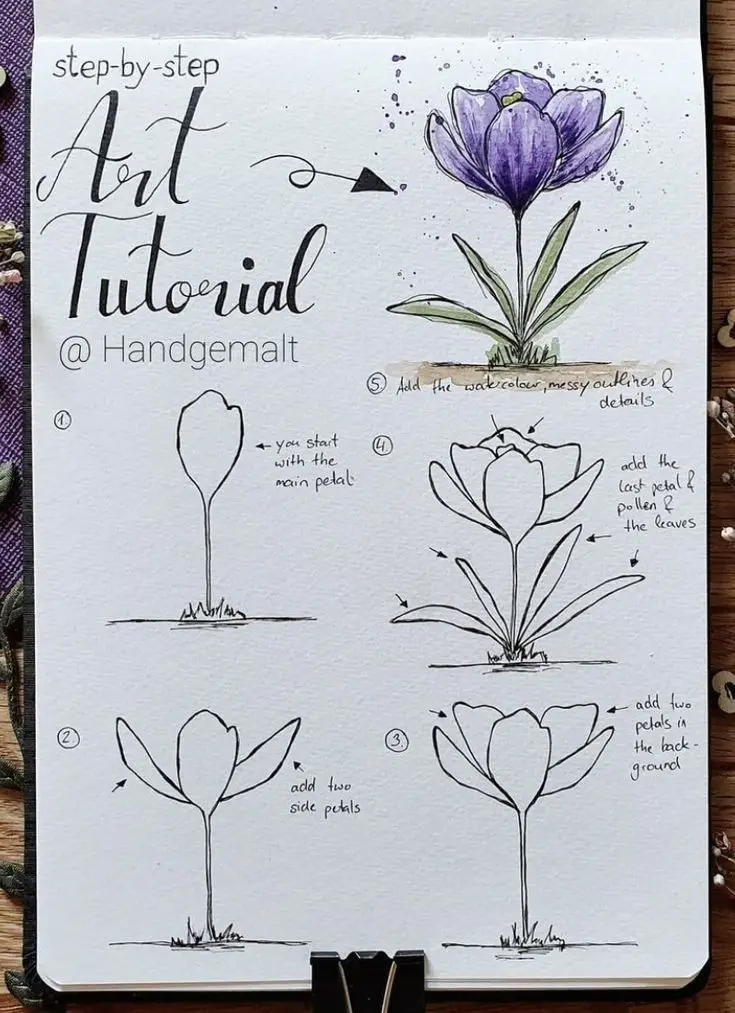 step-by-step
Art
Tutorial
@ Handgemalt
1.
you start
with the
main petal
2.
add two
side petals
3.
add two
petals in
the back-
ground
4.
add the
last petal &
pollen &
the leaves
5. Add the watercolour, messy outlines &
details